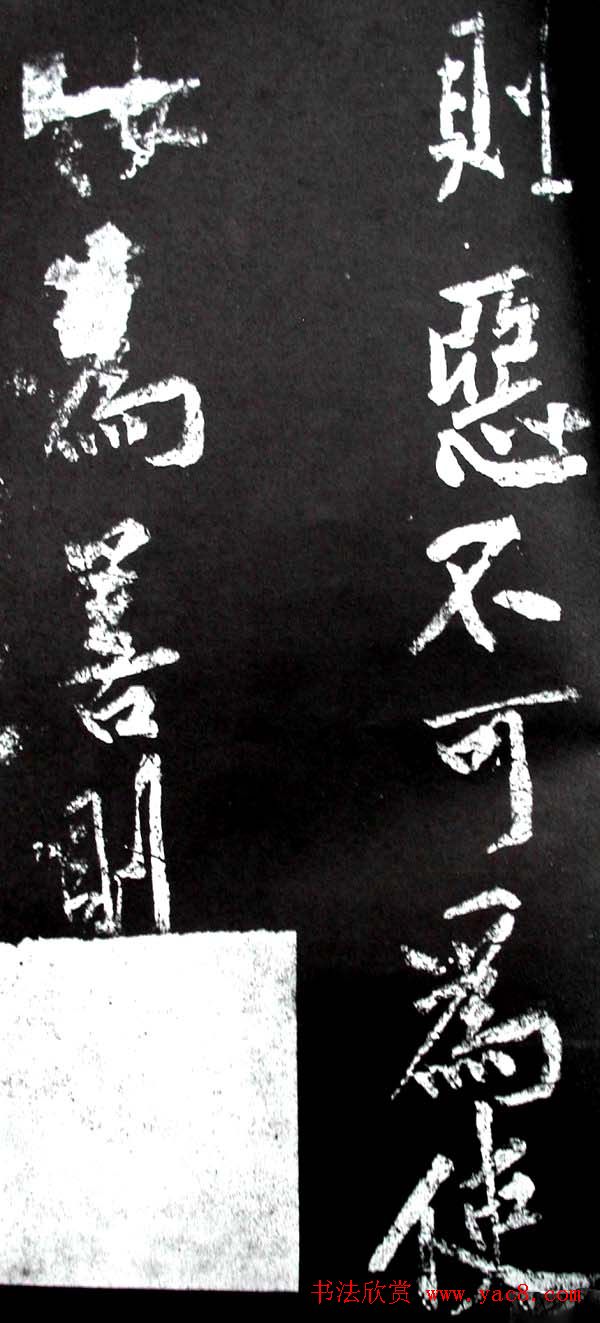 則惡不可為使
汝為善則
书法欣赏 www.yac8.com